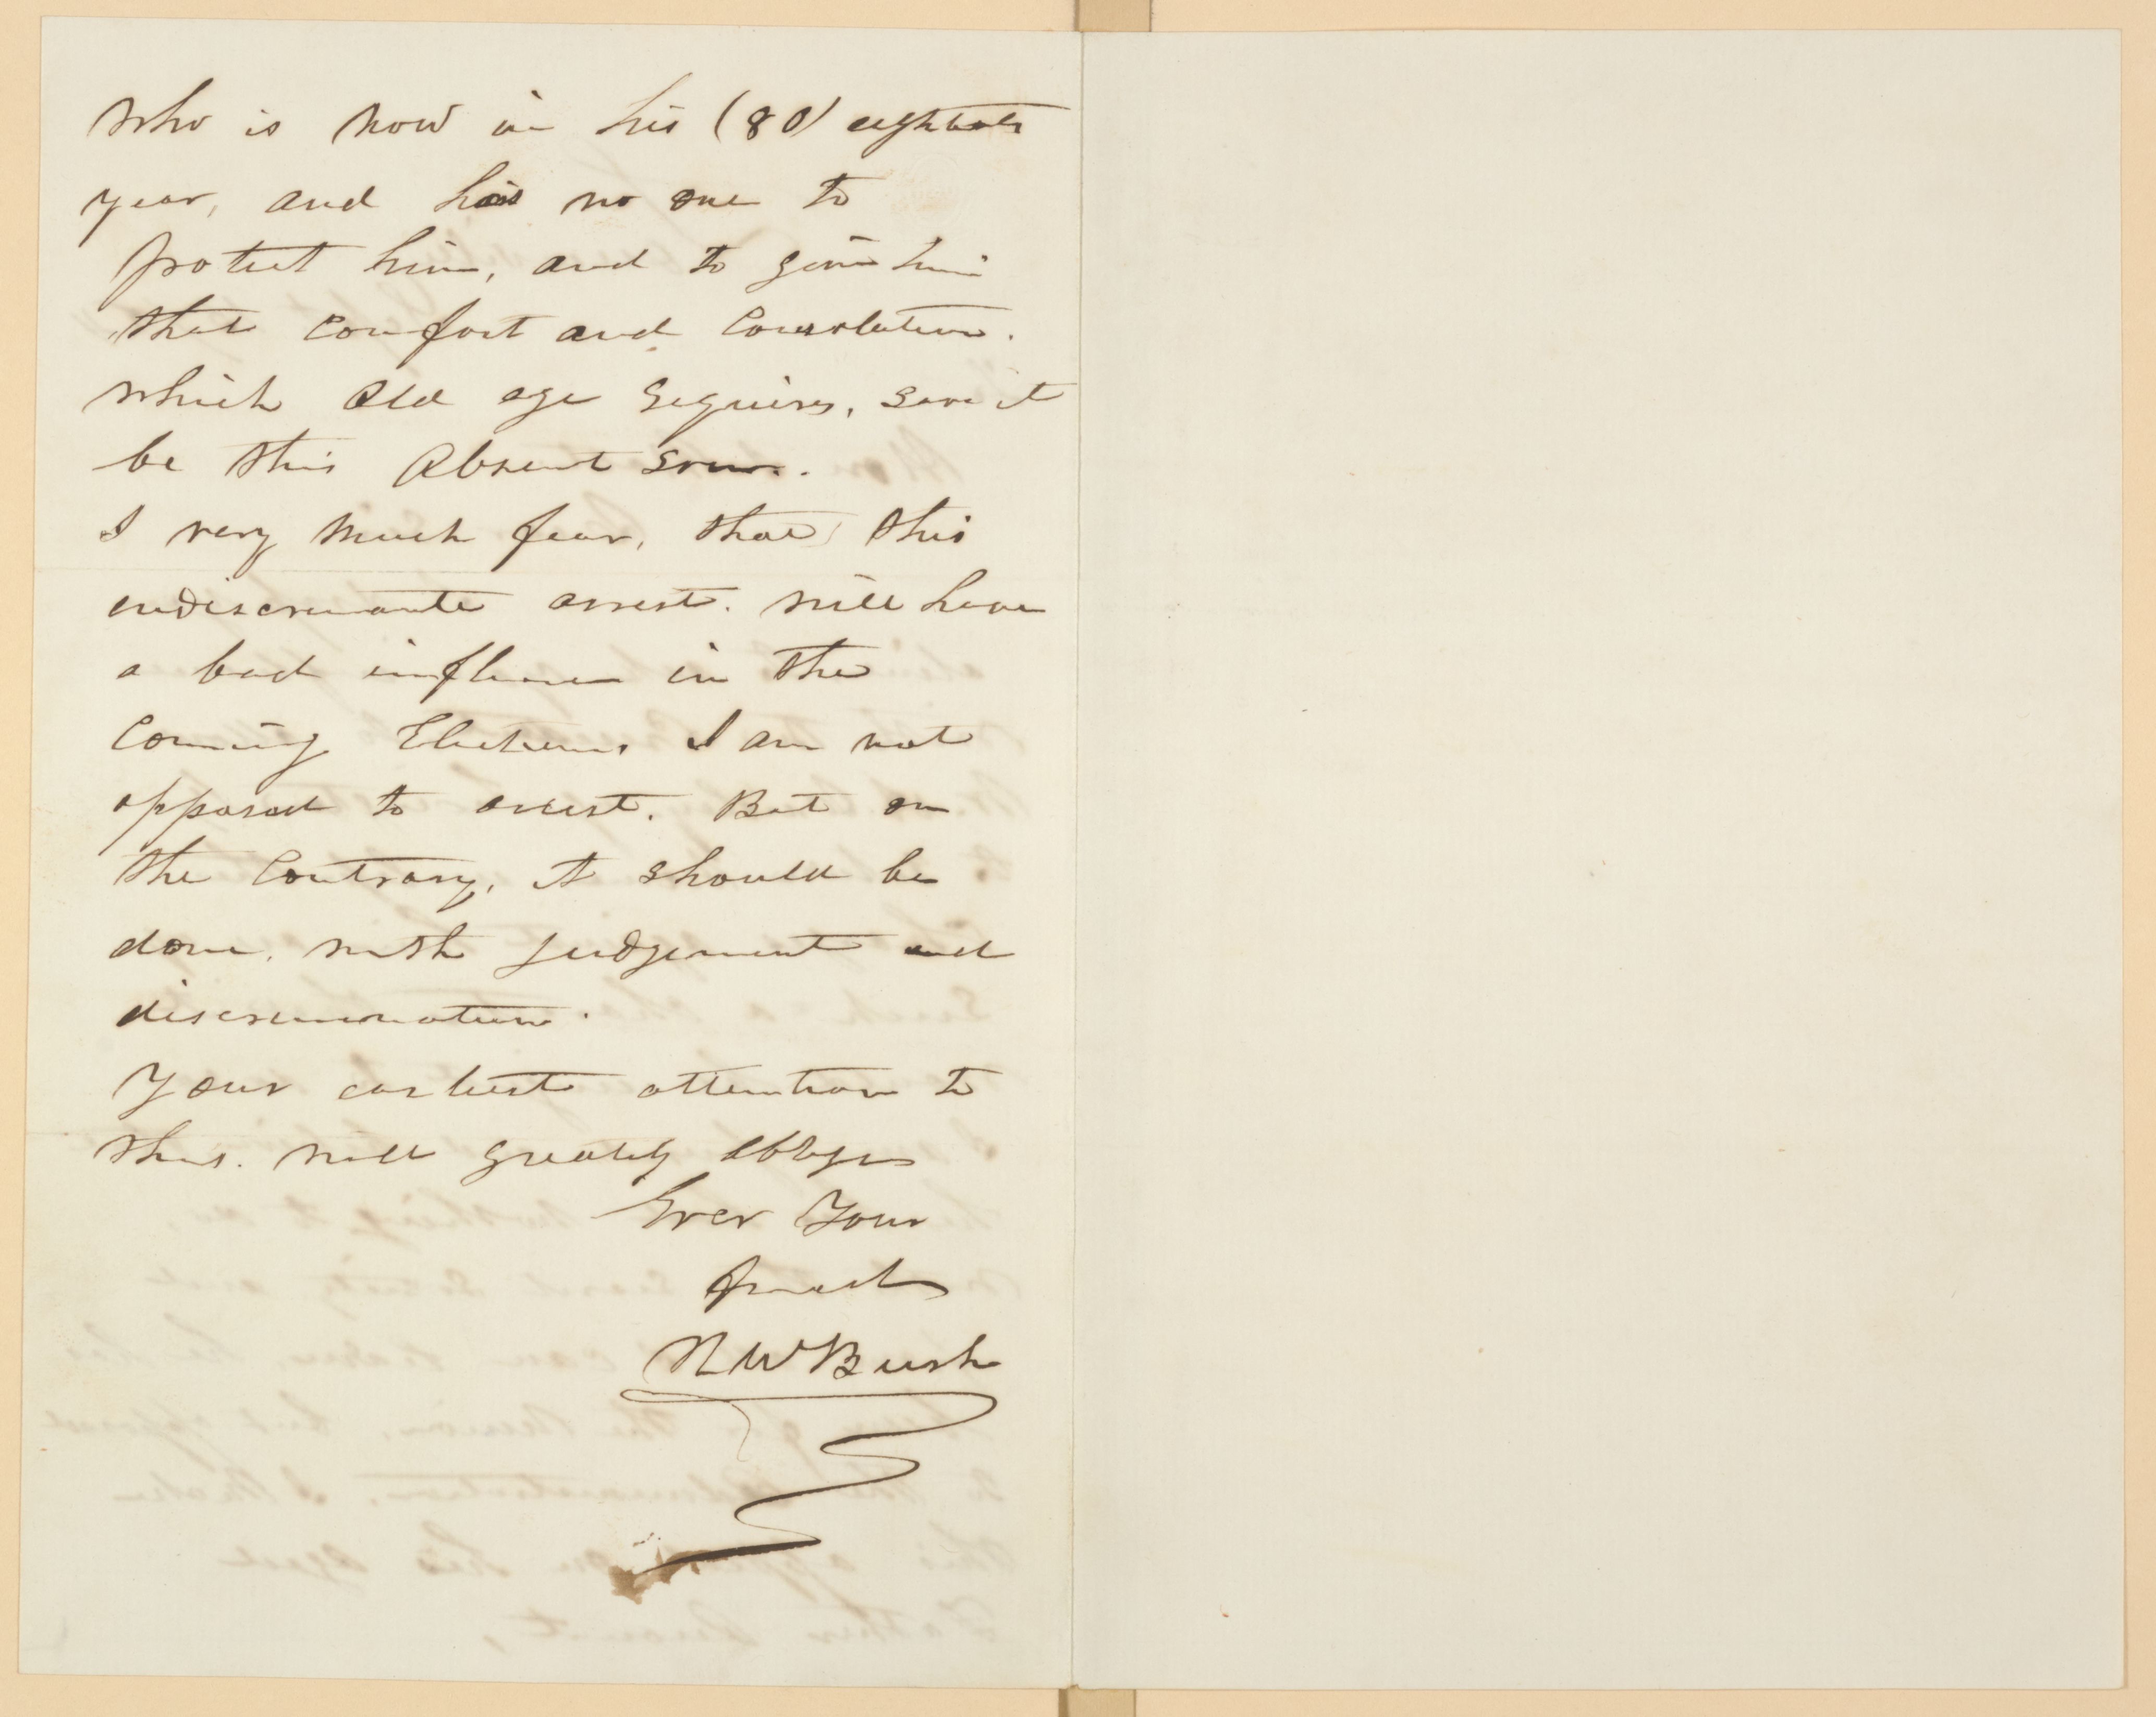 who is now in his (80) eightieth
year, and has no one to
protect him, and to give him
that comfort and Consolation.
which Old age requires, save it
be this Absent son.
I very much fear, that this
indiscrimante arrest. will have
a bad influence in the
Coming Elections, I am not
opposed to arrest. But on
the Contrary, it should be
done, with judgement and
discrimination.
Your earliest attention to
this. will greatly oblige
Ever Your
friend
W Bush